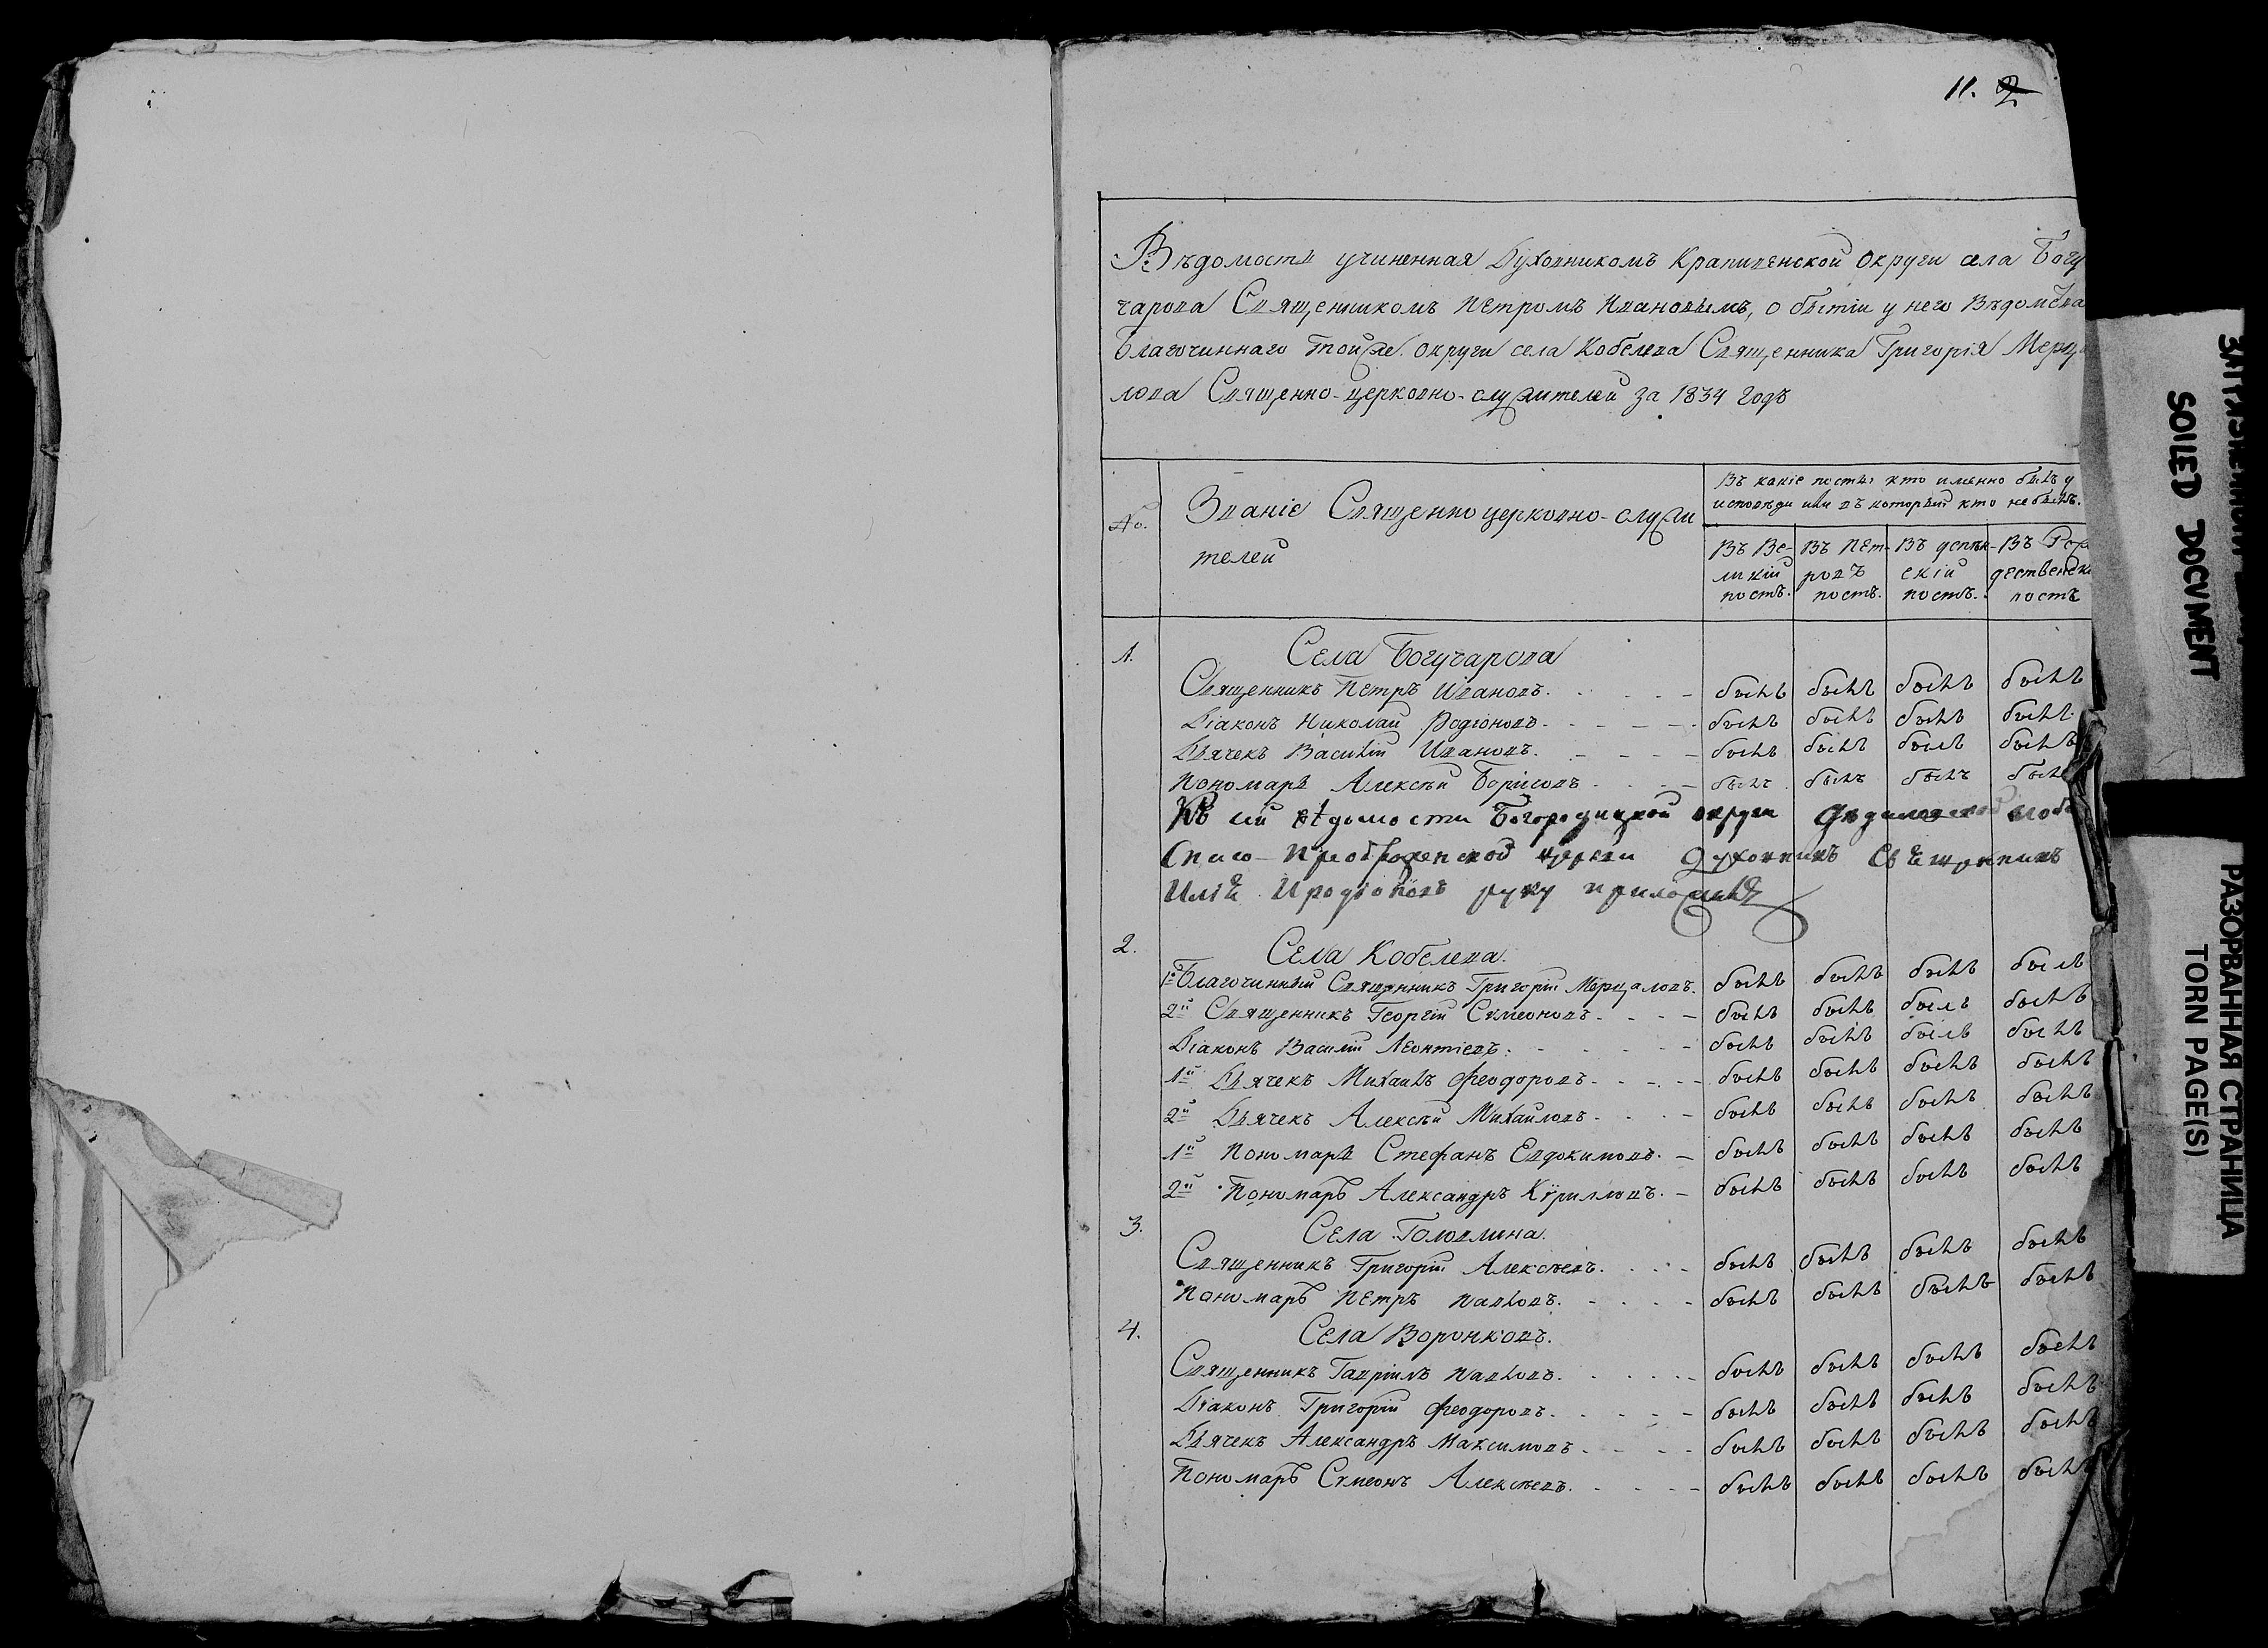 11. 2
Вѣдомость учиненная Духовникомъ Крапивенской округи села Богу
чарова Священникомъ Петромъ Ивановымъ, о бытіи у него Вѣдомства
Благочиннаго той же округи села Кобелева Священника Григорія Мерца
лова Священно-церковно-служителей за 1834 годъ
№.
Званіе Священно церковно-служи
телей
Въ какіе посты кто именно былъ у
исповѣди или въ который кто не былъ.
Въ Ве-
ликій
постъ.
Въ Пет-
ровъ
постъ.
Въ успѣн-
скій
постъ.
Въ Рож
дественск
постъ
1. Села Богучарова
Священникъ Петръ Ивановъ. былъ былъ былъ былъ
Діаконъ Николай Родіоновъ. былъ былъ былъ былъ
Дьячекъ Василій Ивановъ. былъ былъ былъ былъ
Пономарь Алексѣй Борисовъ былъ былъ былъ былъ
Къ сей вѣдомости Богородицкой округи Дѣдиловской слобо
Спасо-Преображенской церкви Духовникъ Священникъ
Илія Иродіоновъ руку приложилъ
2. Села Кобелева.
1й Благочинный Священникъ Григорій Мерцаловъ. былъ былъ былъ былъ
2й Священникъ Георгій Сѵмеоновъ. былъ былъ былъ былъ
Діаконъ Василій Леонтіевъ. былъ былъ былъ былъ
1й Дьячекъ Михаилъ Феодоровъ. былъ былъ былъ былъ
2й Дьячекъ Алексѣй Михайловъ. былъ былъ былъ былъ
1й Пономарь Стефанъ Евдокимовъ. былъ былъ былъ былъ
2й Пономарь Александръ Кѵрилловъ. былъ былъ былъ былъ
3. Села Головлина.
Священникъ Григорій Алексѣевъ. былъ былъ былъ былъ
Пономарь Петръ Павловъ. былъ былъ былъ былъ
4. Села Воронковъ.
Священникъ Гавріилъ Павловъ. былъ былъ былъ былъ
Діаконъ Григорій Феодоровъ. былъ былъ былъ былъ
Дьячекъ Александръ Максимовъ. былъ былъ былъ былъ
Пономарь Сѵмеонъ Алексѣевъ. былъ былъ былъ былъ
SOILED DOCUMENT
РАЗОРВАННАЯ СТРАНИЦА
TORN PAGE(S)